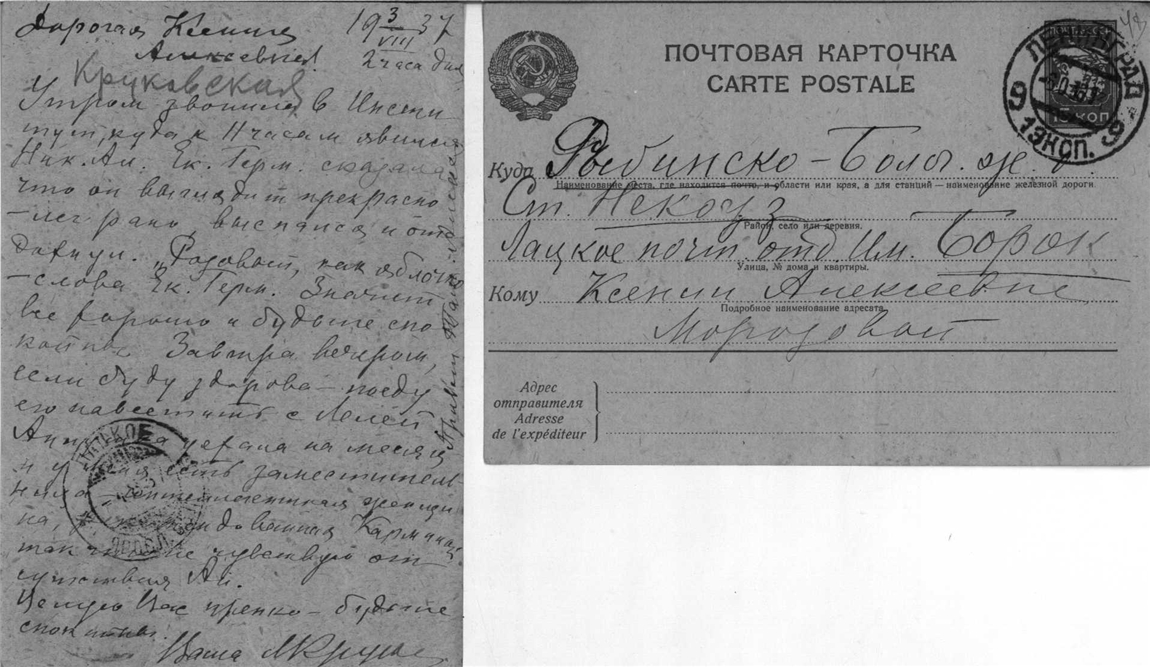 Дорогая Ксения
Алексеевна!
19 3/VIII 37
2 часа дня
Круковская
Утром звонила в Инсти
тут, куда к 11 часам явился
Ник. Ал. Ек. Герм. сказала,
что он выглядит прекрасно
– лег рано выспался и отд
охнул. „Розовый, как яблочко
– слова Ек. Герм. Значит
все хорошо и будьте спо
койны. Завтра вечером,
если буду здорова – поеду
его навестить с Лелей
уехала на месяц
и у есть заместитель
ница – интеллигентная женщи
на,
так что не чувствую от
сутствия Ан.
Целую Вас крепко – будьте
спокойны.
Ваша МКрук
Привет
ЛАЦКОЕ
ЯРОСЛ.
48
ПОЧТОВАЯ КАРТОЧКА
CARTE POSTALE
ЛЕНИНГРАД
9 9
13КОП.
15 КОП
Куда Рыбинско – Болог. ж. д.
Наименование места, где находится почта, и области или края, а для станций — наименование железной дороги.
Ст. Некоуз
Район, село или деревня.
Лацкое почт. отд. Им. Борок
Улица, № дома и квартиры.
Кому Ксении Алексеевне
Подробное наименование адресата.
Морозовой
Адрес
отправителя
Adresse
de l'expéditeur